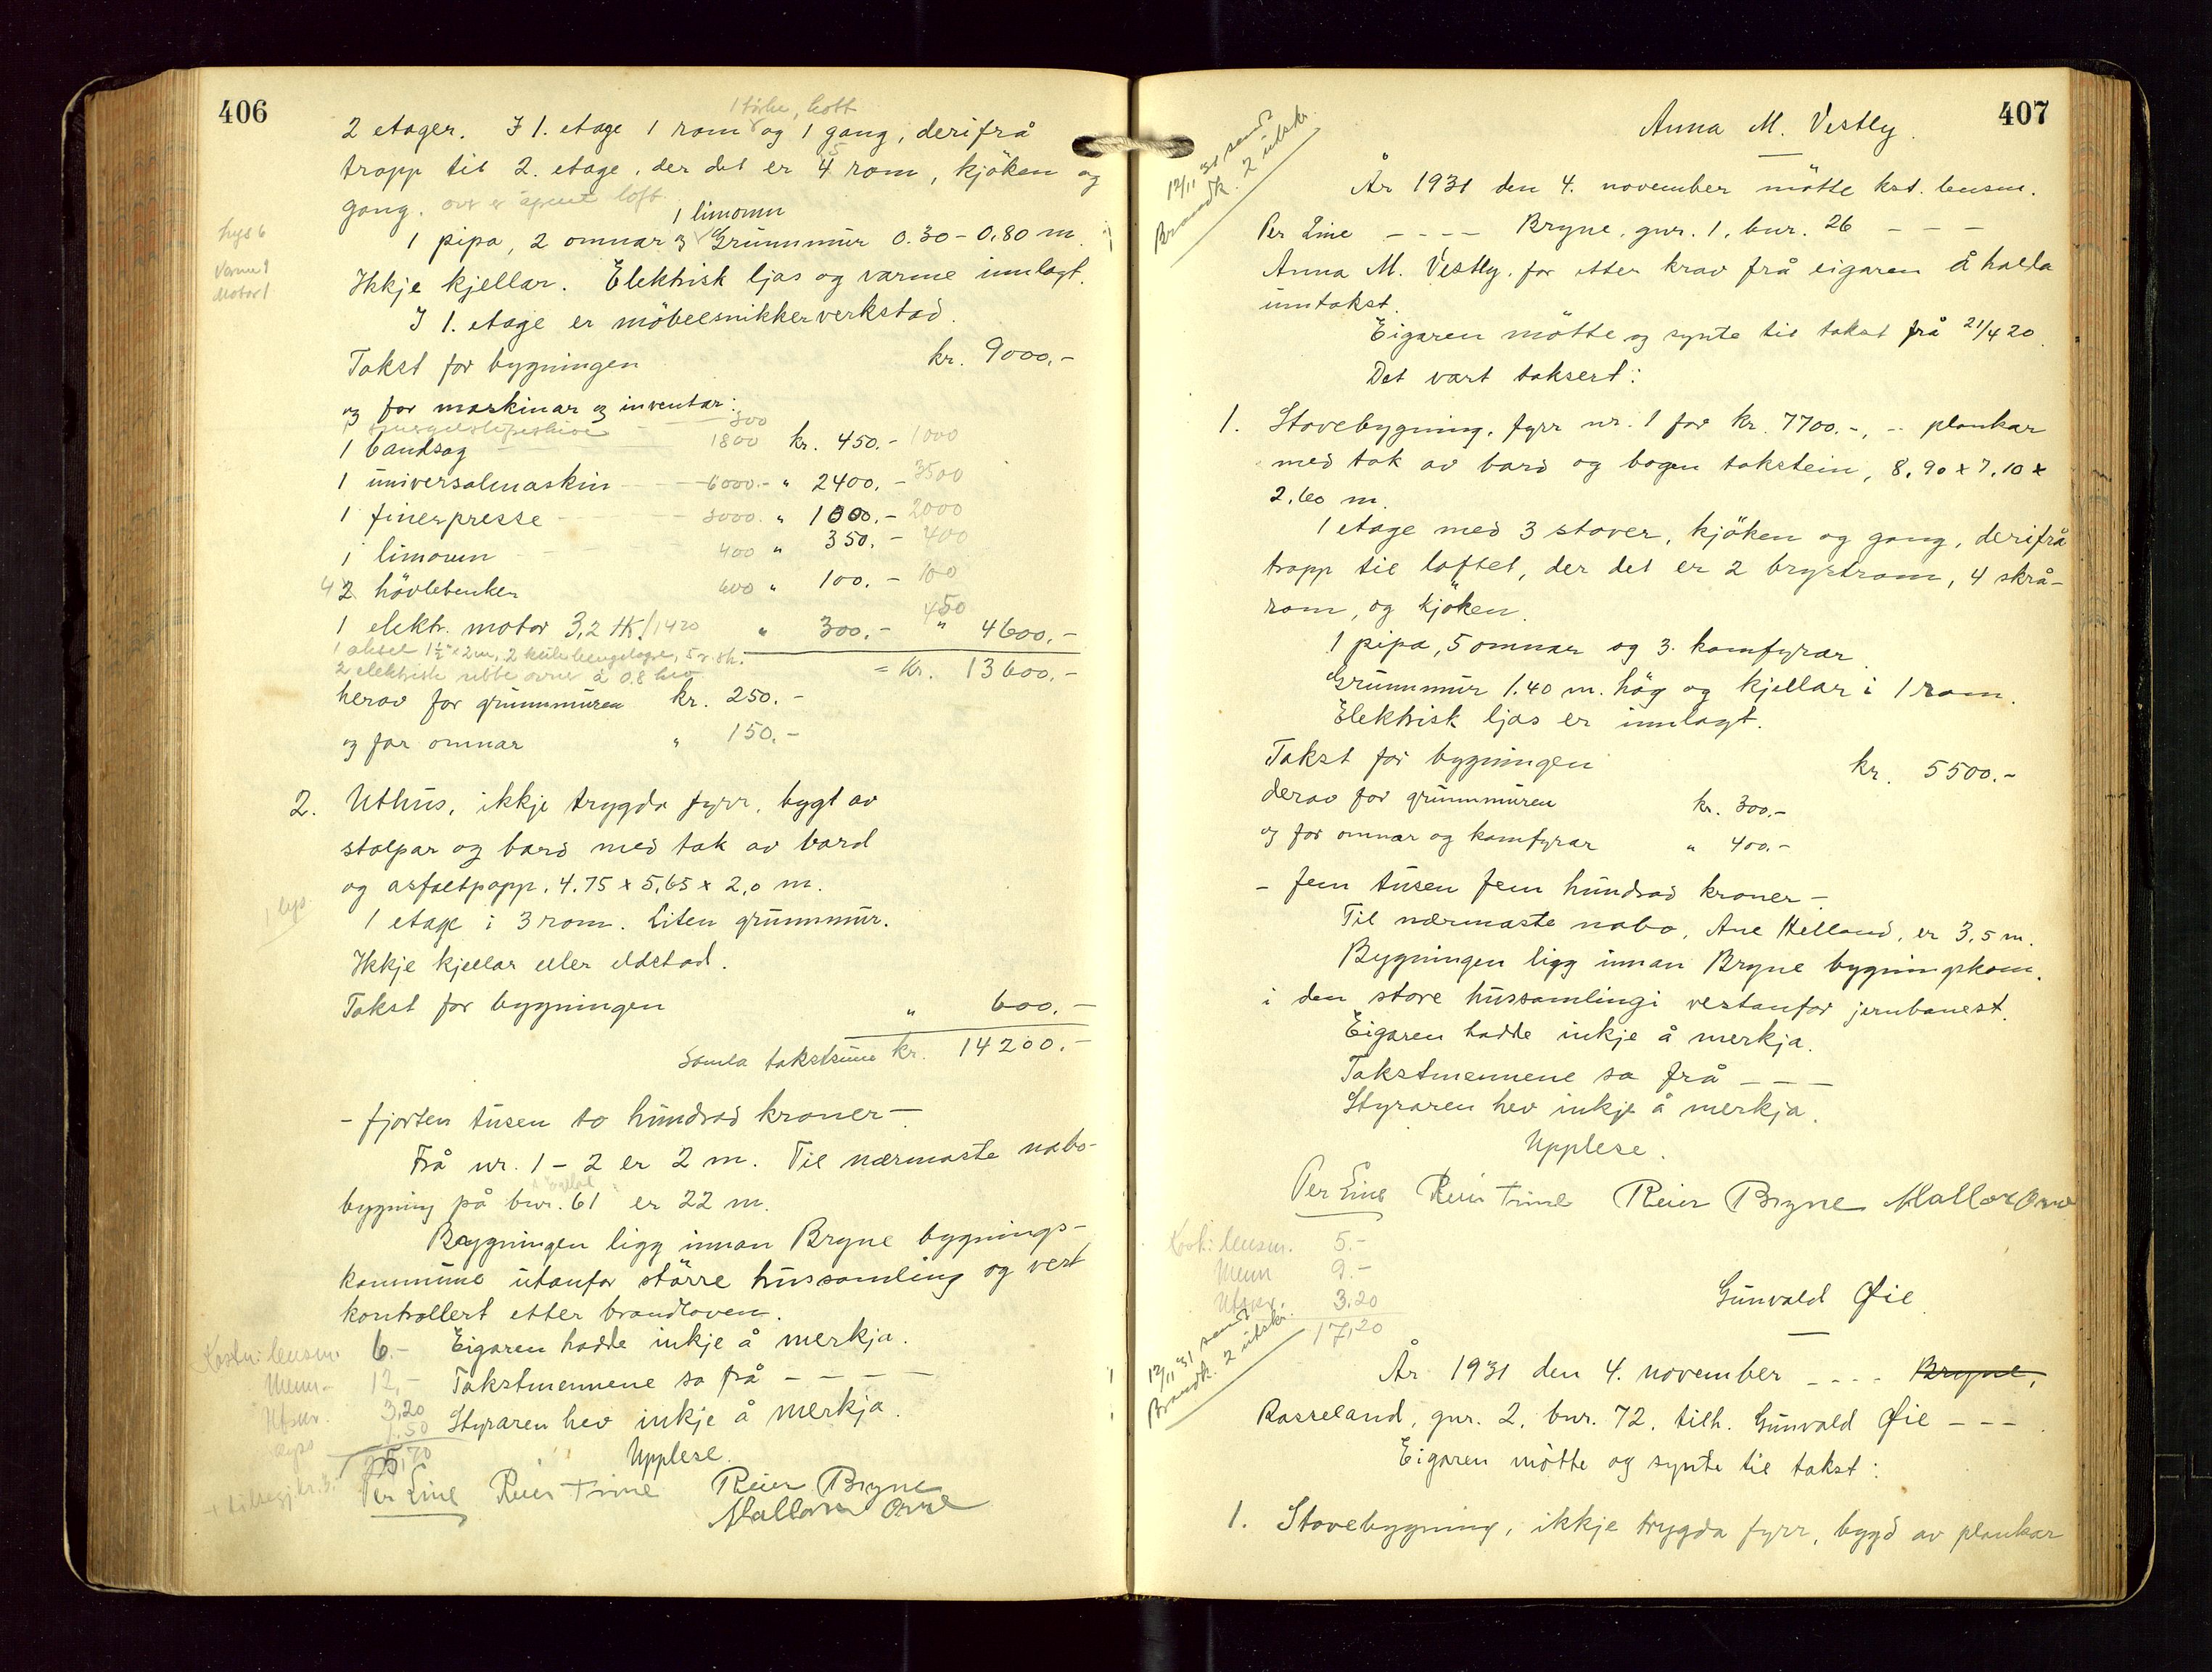 406
1 törke, kott
2 etager. I 1. etage 1 rom og 1 gang, derifrå
trapp til 2. etage, der det er 4 rom, kjöken og
5
gang. over er åpent loft.
1 limomn
1 pipa, 2 omnar og Grunnmur 0.30 - 0.80 m.
Lys 6
Varme 9
Motor 1
Ikkje kjellar. Elektrisk ljos og varme innlagt.
I 1. etage er möbelsnikkerverkstad.
Takst for bygningen kr. 9000.-
og for maskinar og inventar:
1 smergelslipeskive 300
1 bandsag 1800 kr. 450.- 1000
1 universalmaskin 6000.- " 2400.- 3500
1 finerpresse 3000. " 1000.- 2000
1 limovn 400 " 350.- 400
4 2 hövlebenker 600 " 100.- 100
450
1 elektr. motor 3,2 HK/1420 " 300.- " 4600.-
1 aksel 1½" x 2m, 2 kulehengelagre, 5 r.sk.
2 elektriske ribbeovner à 0.8 kw = Kr. 13600.-
herav for grunnmuren kr. 250.-
og for omnar " 150.-
2. Uthus, ikkje trygda fyrr, bygt av
stolpar og bord med tak av bord
og asfaltpapp. 4.75 x 5,65 x 2,0 m.
1 lys
1 etage i 3 rom. Liten grunnmur.
Ikkje kjellar eller eldstad.
Takst for bygningen " 600.-
Samla takstsum kr. 14200.-
- fjorten tusen to hundrad kroner -
Frå nr. 1 - 2 er 2 m. Til nærmaste nabo-
bygning på bnr. 61 er 22 m.
Bygningen ligg innan Bryne bygnings-
kommune utanfor större hussamling og vert
kontrollert etter brandloven.
Kostn: lensm. 6.- Eigaren hadde inkje å merkja.
Menn 12,- Takstmennene sa frå - - - -
Utskr. 3,20
1,50 Styraren hev inkje å merkja.
Upplese.
Per Line Reier Trine Reier Bryne
Mallon Orre
407
Anna M. Vestly.
12/11 31 sendt
Brandk. 2 utskr.
År 1931 den 4. november mötte kst. lensm.
Per Line - - - - Bryne, gnr. 1, bnr. 26 - - -
Anna M. Vestly, for etter krav frå eigaren å halda
umtakst.
Eigaren mötte og synte til takst frå 21/4 20.
Det vart taksert:
1. Stovebygning, fyrr nr. 1 for kr. 7700.-, - plankar
med tak av bord og bogen takstein, 8,90 x 7,10 x
2,60 m.
1 etage med 3 stover, kjöken og gang, derifrå
trapp til loftet, der det er 2 brystrom, 4 skrå-
rom, og kjöken.
1 pipa, 5 omnar og 3. komfyrar.
Grunnmur 1.40 m. høg og kjellar i 1 rom.
Elektrisk ljos er innlagt.
Takst for bygningen kr. 5500.-
derav for grunnmuren kr. 300.-
og for omnar og komfyrar " 400.-
- fem tusen fem hundrad kroner -.
Til nærmaste nabo, Ane Helland, er 3,5 m.
Bygningen ligg innan Bryne bygningskom.
i den store hussamlingi vestanfor jernbanest.
Eigaren hadde inkje å merkja.
Takstmennene sa frå - - -
Styraren hev inkje å merkja.
Upplese.
Per Line Reier Trine Reier Bryne Mallon Orre
Kost: lensm. 5.-
Menn 9.-
Utskr. 3.20
17,20
Gunvald Øie
12/11 31 sendt
Brandk. 2 utskr.
År 1931 den 4. november - - - - Bryne,
Rosseland, gnr. 2, bnr. 72, tilh. Gunvald Øie - - -
Eigaren mötte og synte til takst:
1. Stovebygning, ikkje trygda fyrr, bygd av plankar